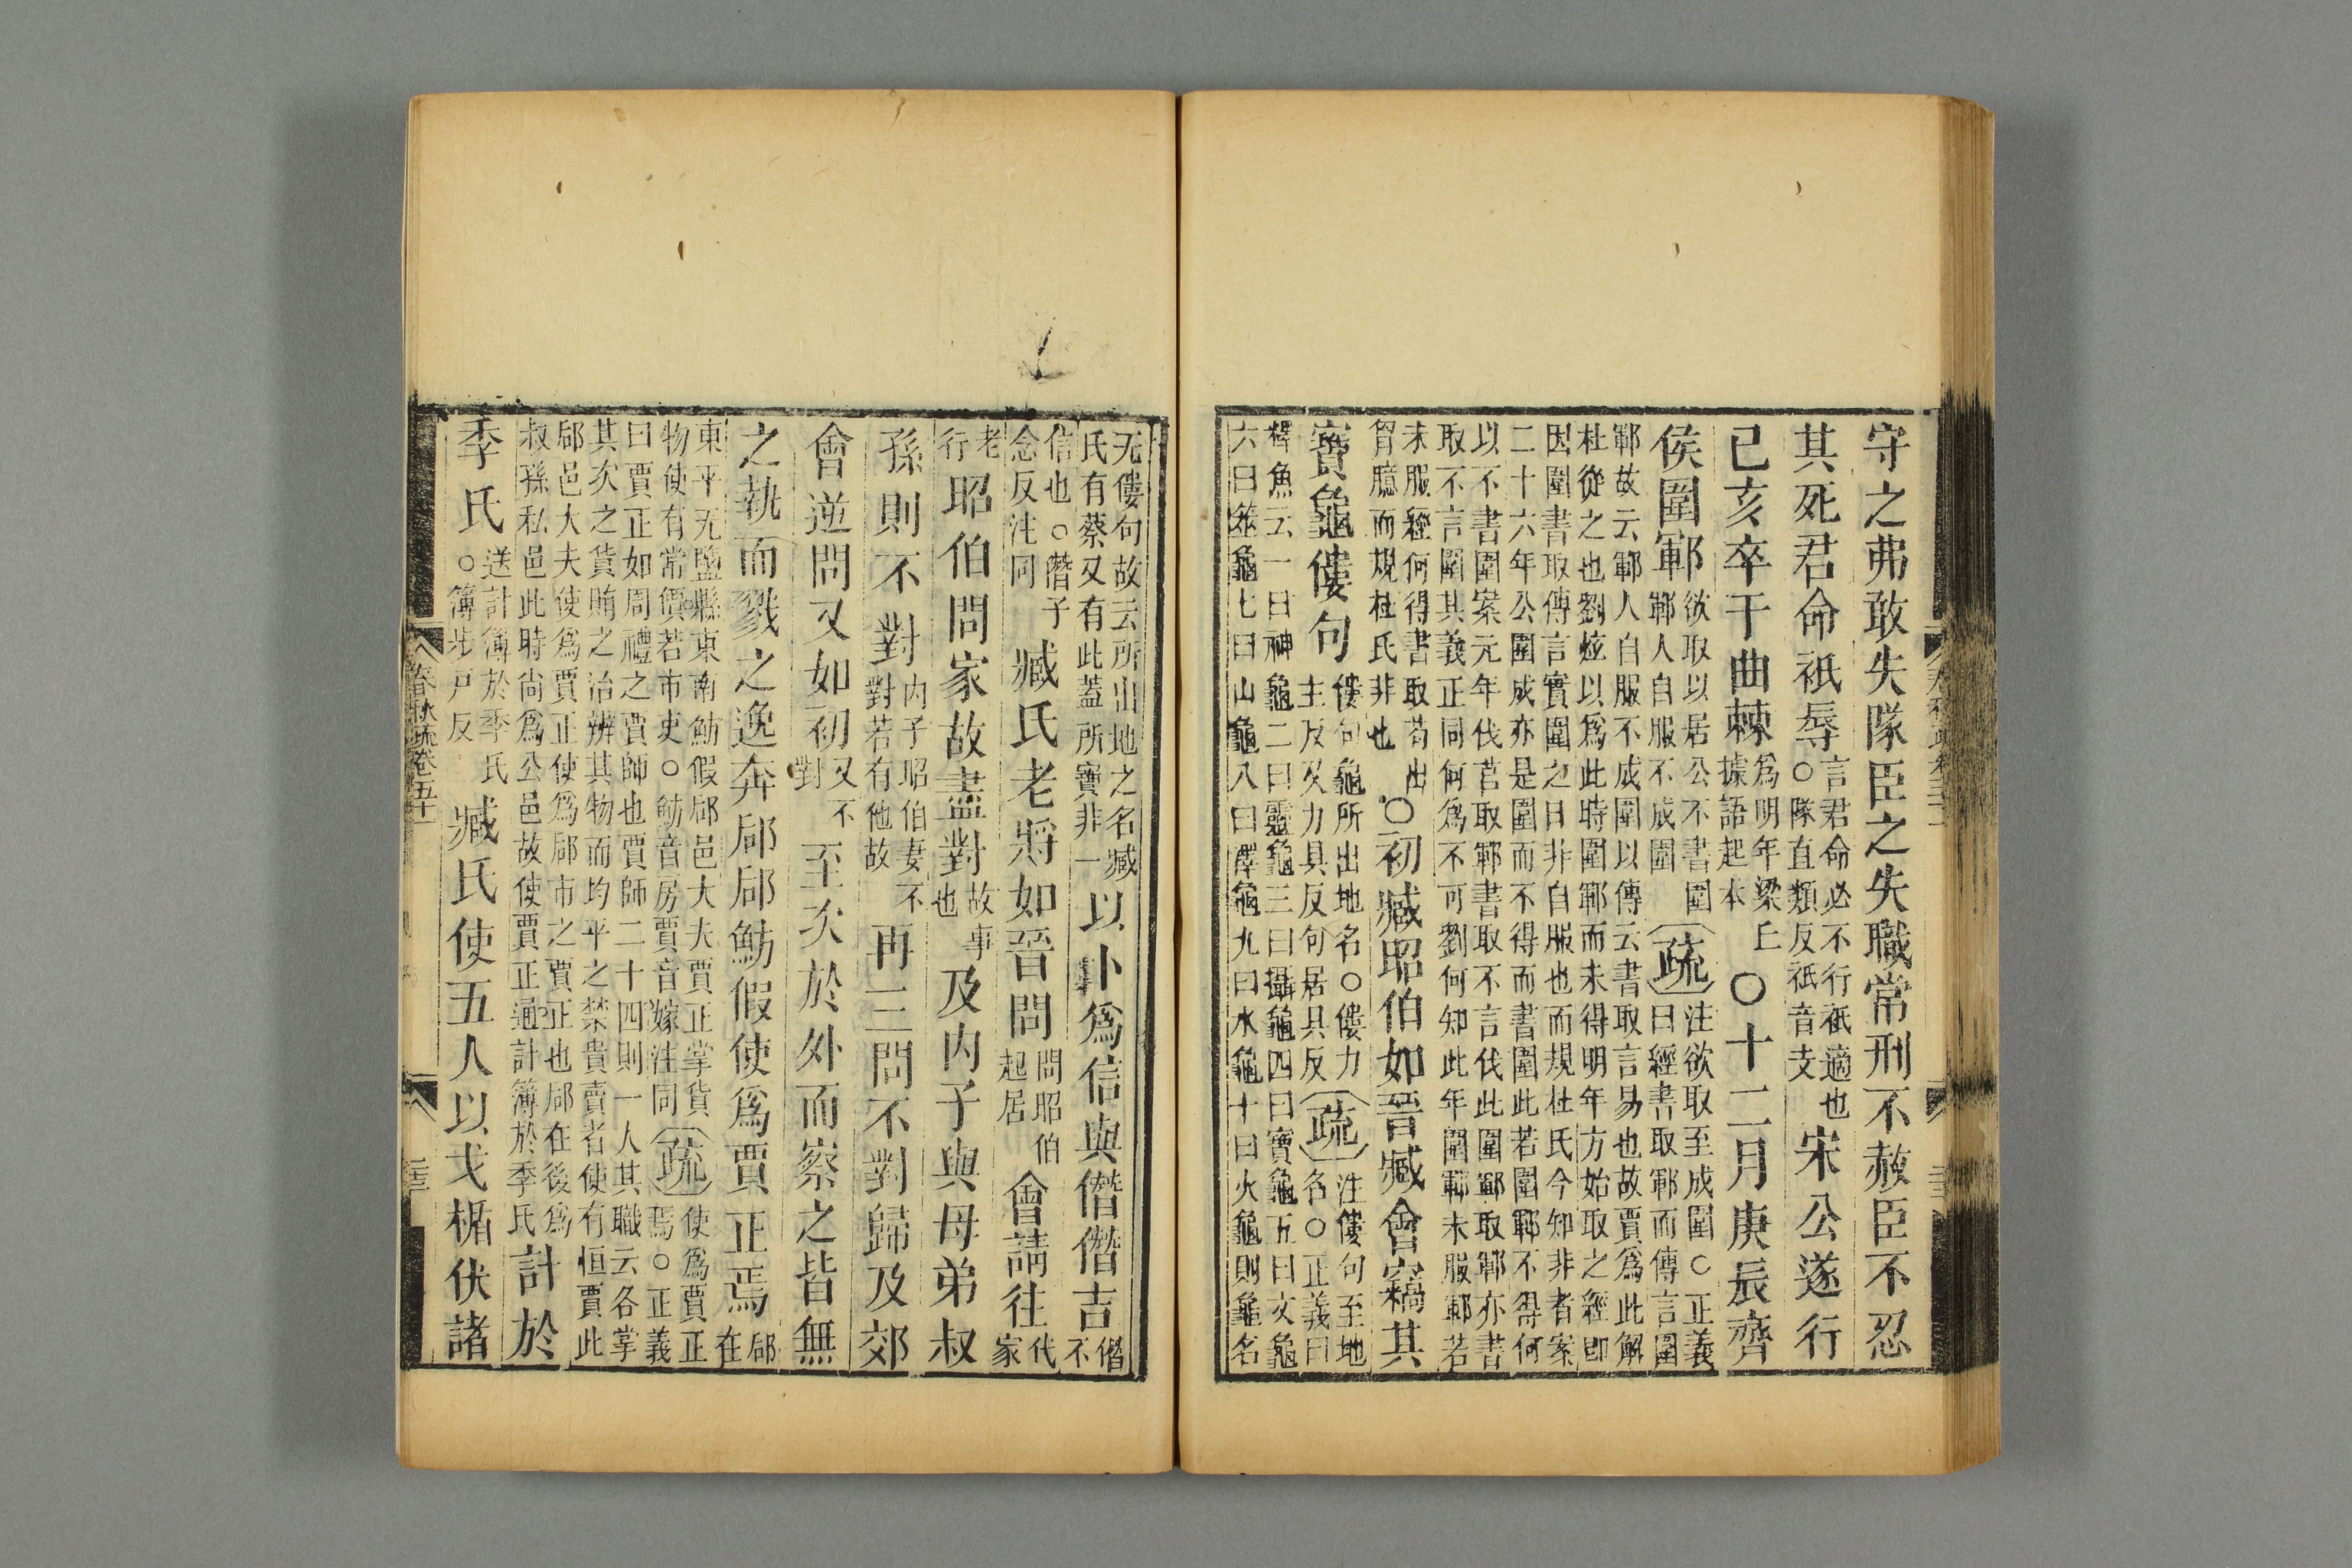 守之弗敢失隊臣之失職常刑不赦臣不忍
其死君命祇辱言君命必不行祇適也
○隊直類反祇音支宋公遂行
己亥卒于曲棘爲明年梁丘
據語起本○十二月庚辰齊
侯圍鄆欲取以居公不書圍
鄆人自服不成圍疏注欲取至成圍○正義
曰經書取鄆而傳言圍
鄆故云鄆人自服不成圍以傳云書取言易也故賈爲此解
杜從之也劉炫以爲此時圍鄆而未得明年方始取之經即
因圍書取傳言實圍之日非自服也而規杜氏今知非者案
二十六年公圍成亦是圍而不得而書圍此若圍鄆不得何
以不書圍案元年伐莒取鄆書取不言伐此圍鄆取鄆亦書
取不言圍其義正同何爲不可劉何知此年圍鄆未服鄆若
未服經何得書取苟出
胷臆而規杜氏非也○初臧昭伯如晉臧會竊其
寶龜僂句僂句龜所出地名○僂力
主反又力具反句居具反疏注僂句至地
名○正義曰
釋魚云一曰神龜二曰靈龜三曰攝龜四曰寶龜五曰文龜
六曰筮龜七曰山龜八曰澤龜九曰水龜十曰火龜則龜名
无僂句故云所出地之名臧
氏有蔡又有此蓋所寶非一以卜爲信與僭僭吉僭
不
信也○僭子
念反注同臧氏老將如晉問問昭伯
起居會請往代
家
老
行昭伯問家故盡對故事
也及內子與母弟叔
孫則不對內子昭伯妻不
對若有他故再三問不對歸及郊
會逆問又如初又不
對至次於外而察之皆無
之執而戮之逸奔郈郈魴假使爲賈正焉郈
在
東平无鹽縣東南魴假郈邑大夫賈正掌貨
物使有常價若市吏○魴音房賈音嫁注同疏使爲賈正
焉○正義
曰賈正如周禮之賈師也賈師二十四則一人其職云各掌
其次之貨賄之治辨其物而均平之禁貴賣者使有恒賈此
郈邑大夫使爲賈正使爲郈市之賈正也郈在後爲
叔孫私邑此時尚爲公邑故使賈正通計簿於季氏計於
季氏送計簿於季氏
○簿步戶反臧氏使五人以戈楯伏諸
春秋疏卷五十一